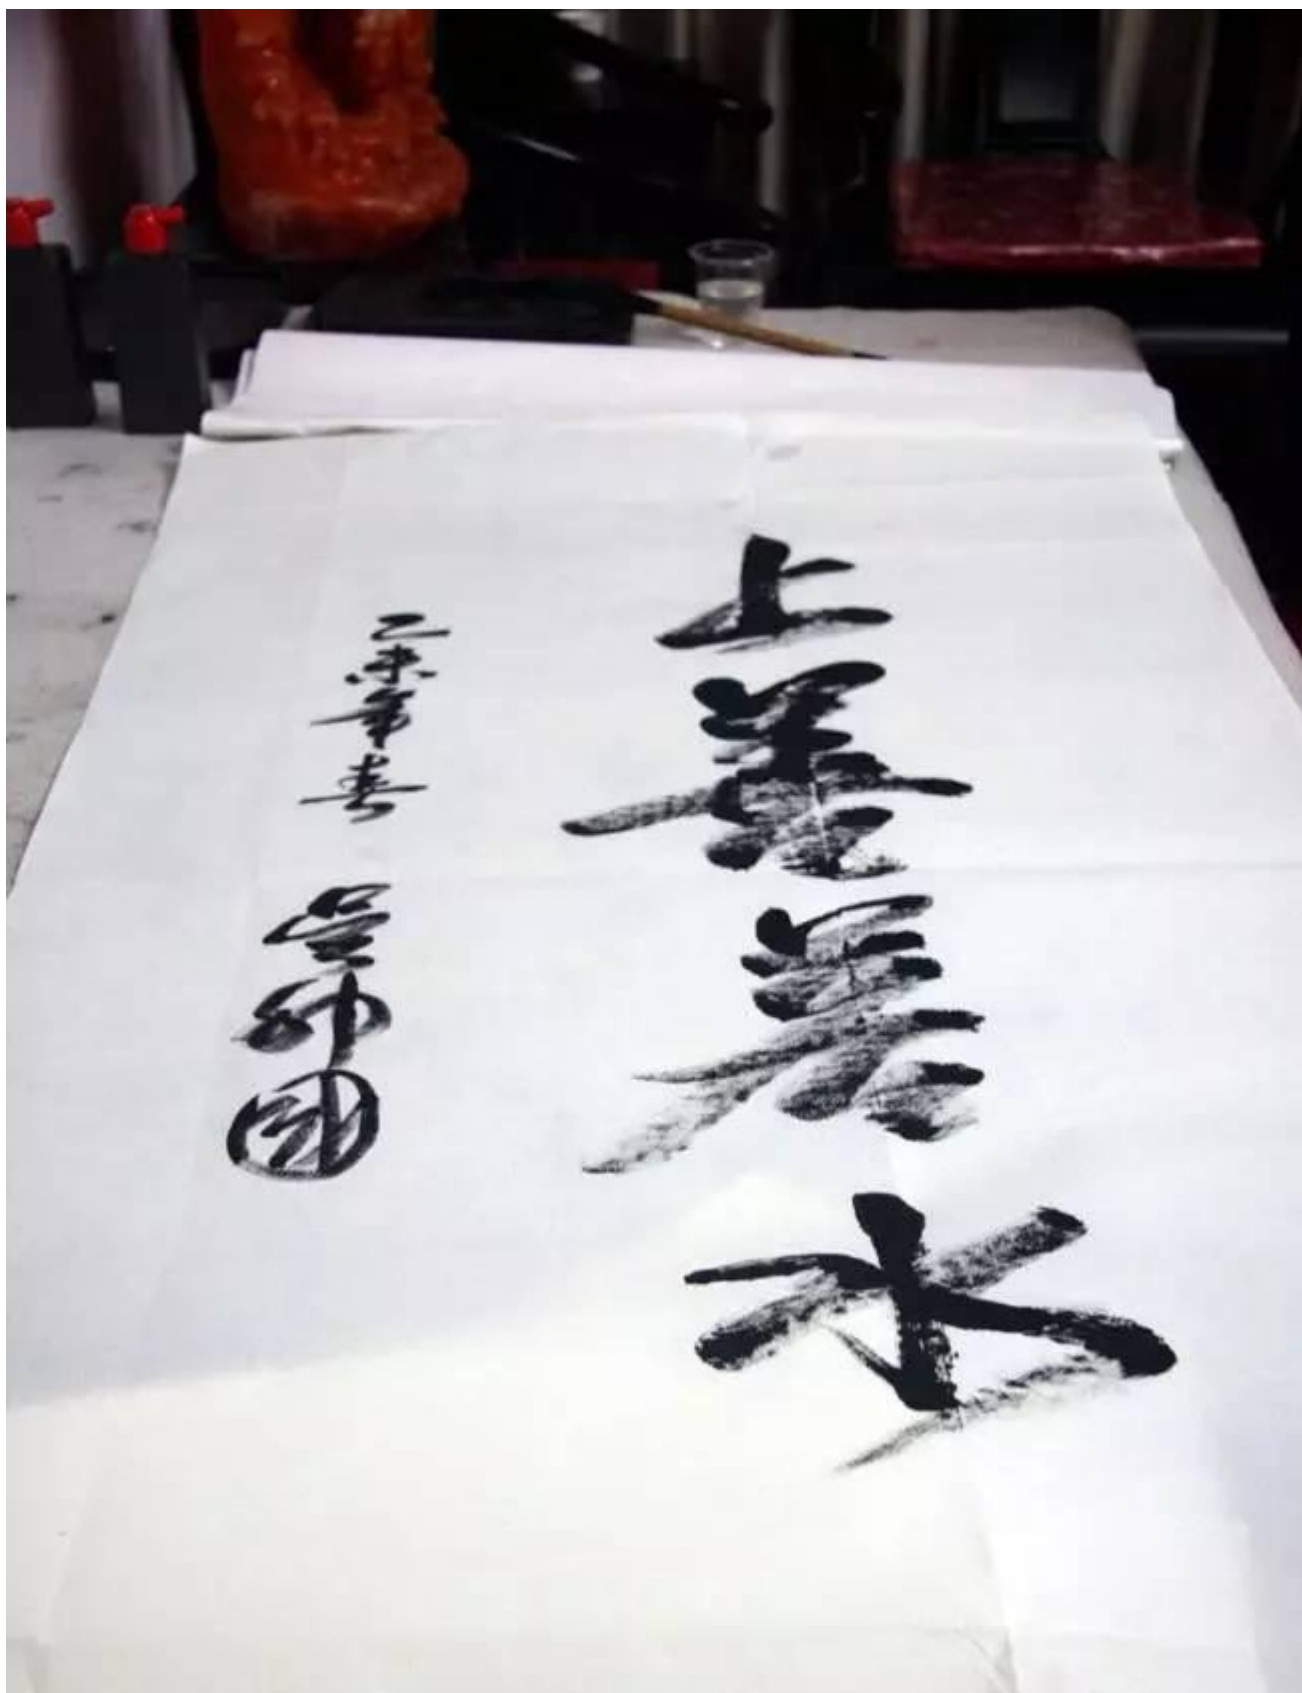 上善若水
乙未年春 國